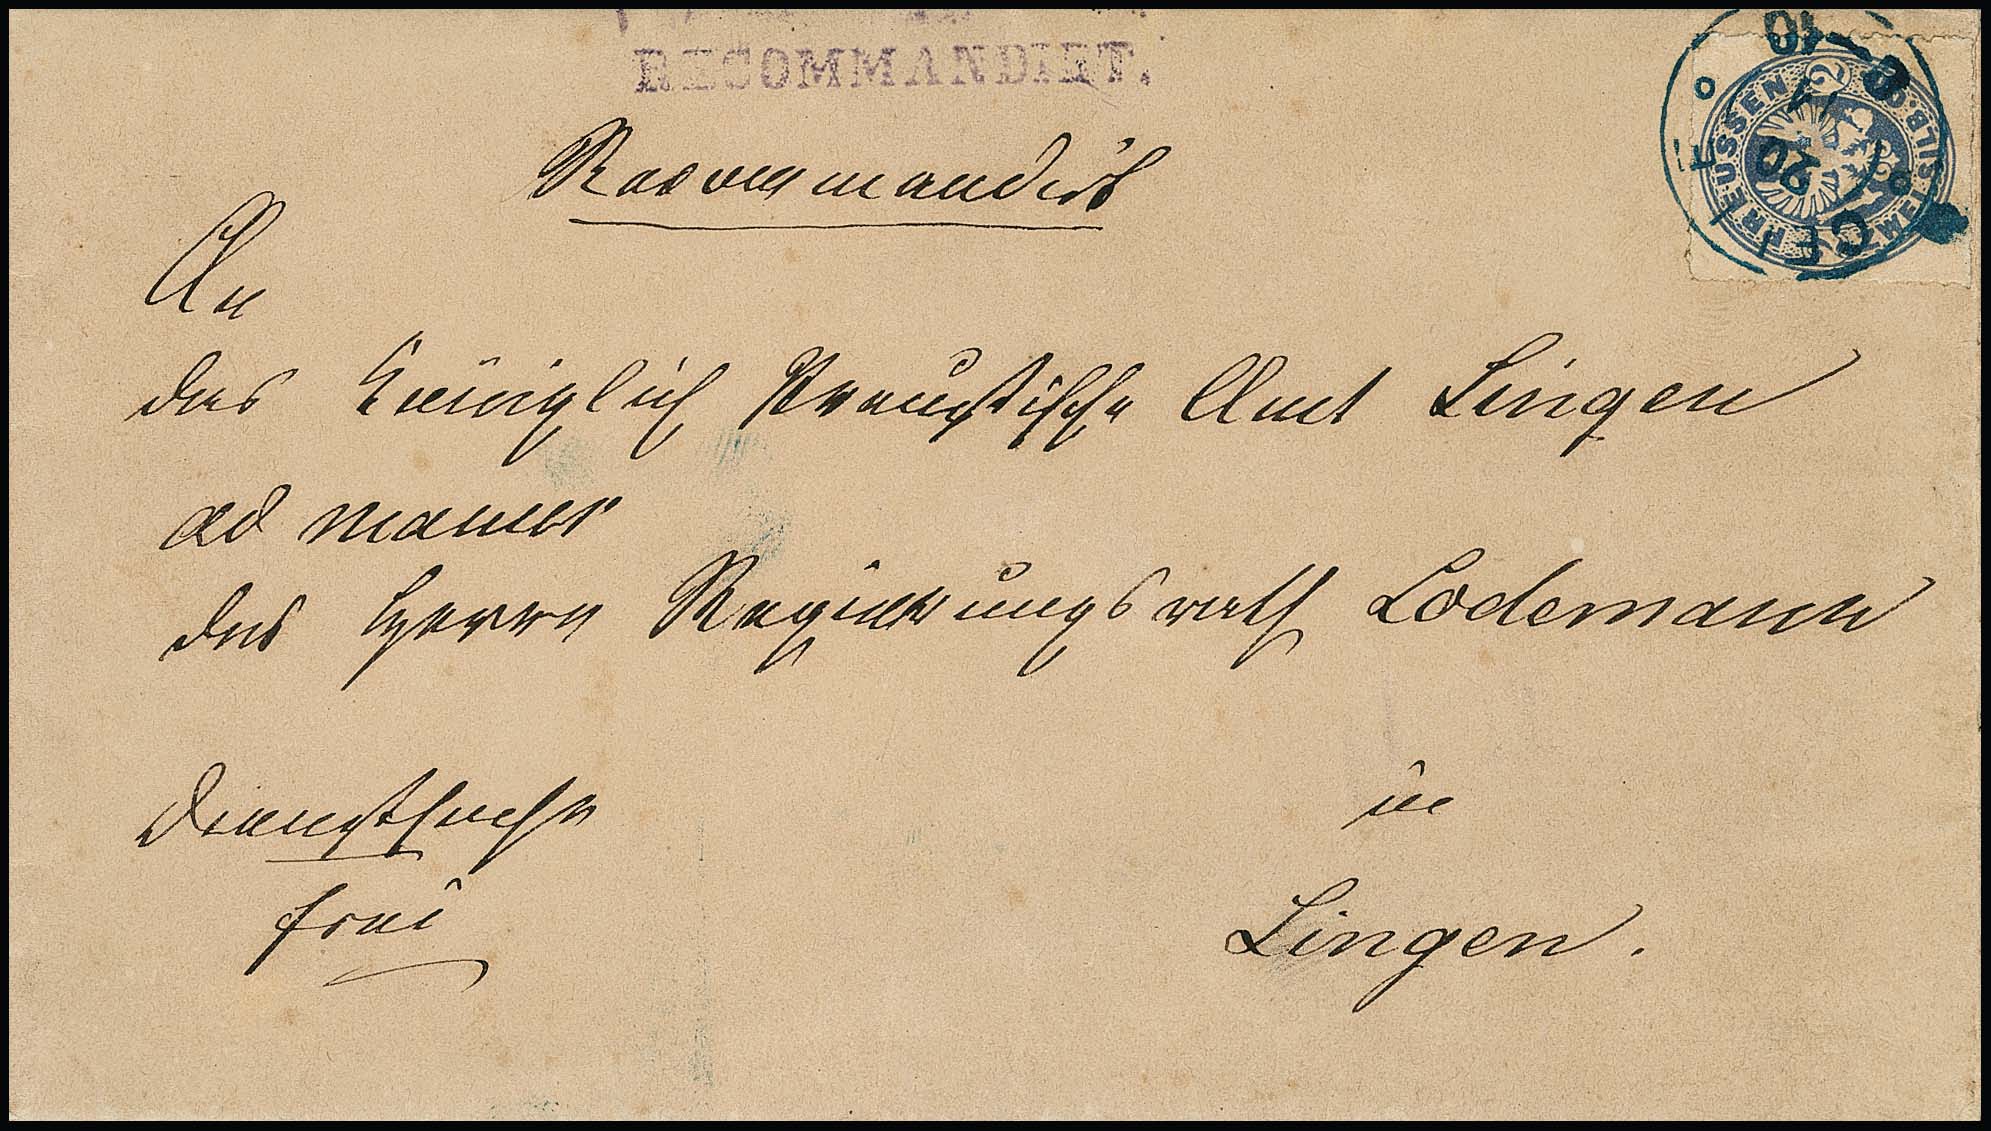 RECOMMANDIRT.
PREUSSEN
ZWEI SILB. GR.
2
20
11
CE
Recommandirt
An
das Königlich Preußische Amt Lingen
ad manus
des Herrn Regierungsrath Lodemann
Dienstsache
frei
in
Lingen.